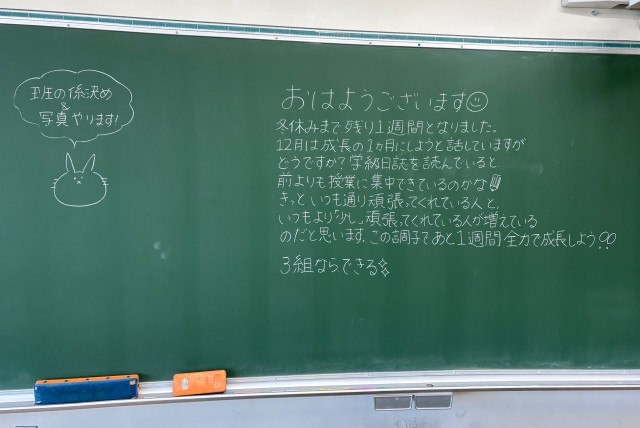 班の係決め
&
写真やります!
おはようございます
冬休みまで残り1週間となりました。
12月は成長の1ヵ月にしようと話していますが
どうですか?学級日誌を読んでいると
前よりも授業に集中できているのかな
きっといつも通り頑張ってくれている人と、
いつもより「少し」頑張ってくれている人が増えている
のだと思います。この調子であと1週間全力で成長しよう!!
3組ならできる